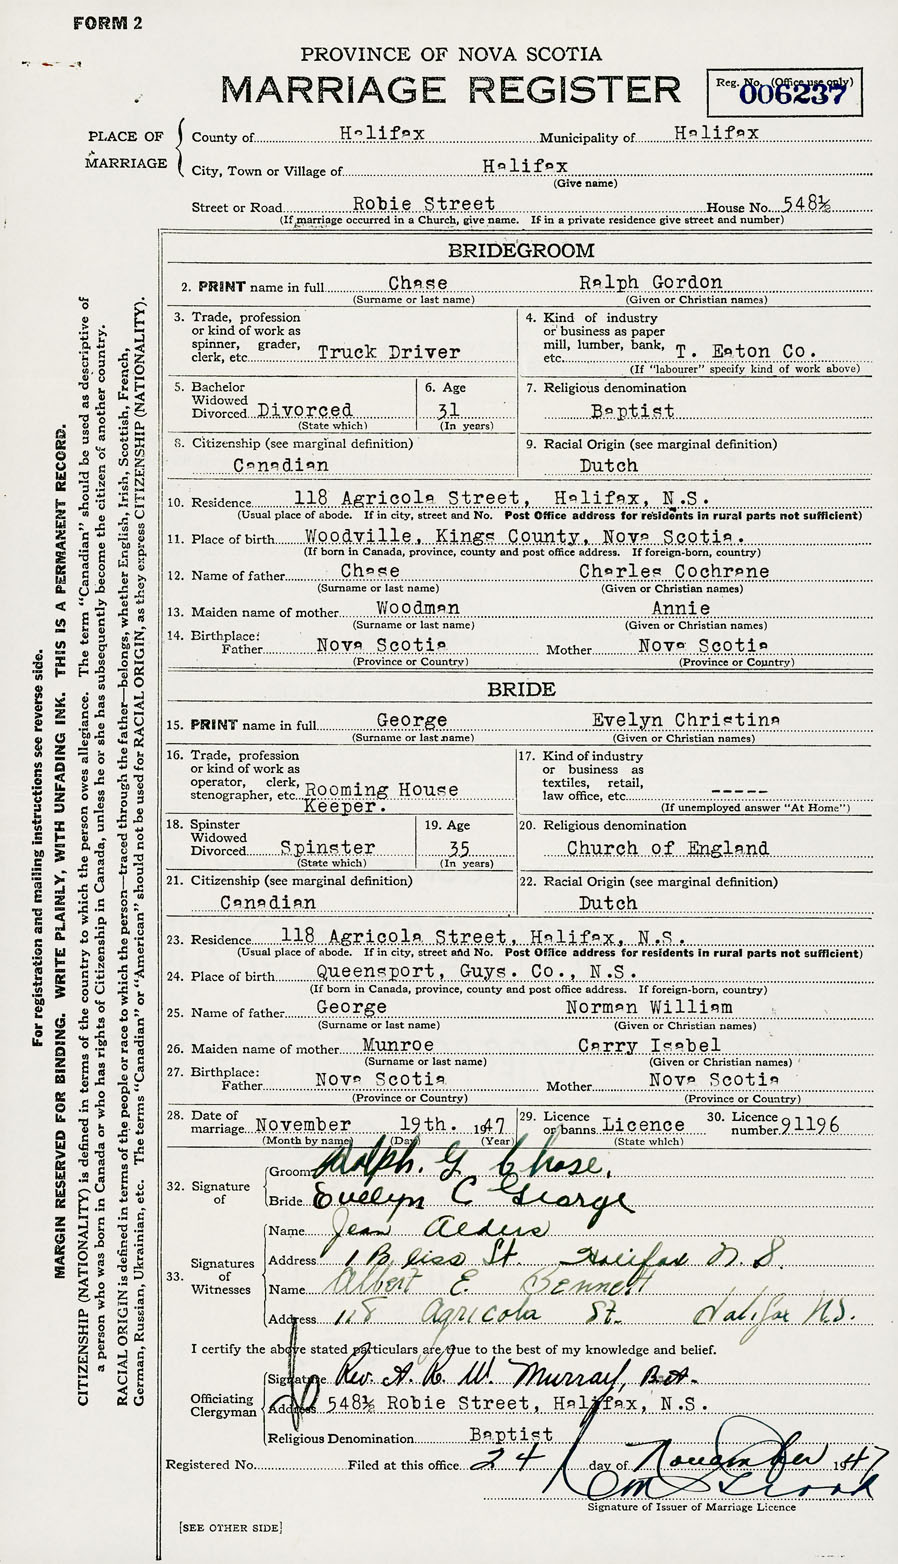 FORM 2
PROVINCE OF NOVA SCOTIA
MARRIAGE REGISTER
Reg. No. (Office use only)
006237
PLACE OF MARRIAGE
County of Halifax Municipality of Halifax
City, Town or Village of Halifax
(Give name)
Street or Road Robie Street House No. 548½
(If marriage occurred in a Church, give name. If in a private residence give street and number)
BRIDEGROOM
2. PRINT name in full Chase Ralph Gordon
(Surname or last name) (Given or Christian names)
3. Trade, profession or kind of work as spinner, grader, clerk, etc. Truck Driver
4. Kind of industry or business as paper mill, lumber, bank, etc. T. Eaton Co.
(If "labourer" specify kind of work above)
5. Bachelor Widowed Divorced Divorced
(State which)
6. Age 31
(In years)
7. Religious denomination
Baptist
8. Citizenship (see marginal definition)
Canadian
9. Racial Origin (see marginal definition)
Dutch
10. Residence 118 Agricola Street, Halifax, N.S.
(Usual place of abode. If in city, street and No. Post Office address for residents in rural parts not sufficient)
11. Place of birth Woodville, Kings County, Nova Scotia.
(If born in Canada, province, county and post office address. If foreign-born, country)
12. Name of father Chase Charles Cochrane
(Surname or last name) (Given or Christian names)
13. Maiden name of mother Woodman Annie
(Surname or last name) (Given or Christian names)
14. Birthplace:
Father Nova Scotia Mother Nova Scotia
(Province or Country) (Province or Country)
BRIDE
15. PRINT name in full George Evelyn Christina
(Surname or last name) (Given or Christian names)
16. Trade, profession or kind of work as operator, clerk, stenographer, etc. Rooming House Keeper.
17. Kind of industry or business as textiles, retail, law office, etc. -----
(If unemployed answer "At Home")
18. Spinster Widowed Divorced Spinster
(State which)
19. Age 35
(In years)
20. Religious denomination
Church of England
21. Citizenship (see marginal definition)
Canadian
22. Racial Origin (see marginal definition)
Dutch
23. Residence 118 Agricola Street, Halifax, N.S.
(Usual place of abode. If in city, street and No. Post Office address for residents in rural parts not sufficient)
24. Place of birth Queensport, Guys. Co., N.S.
(If born in Canada, province, county and post office address. If foreign-born, country)
25. Name of father George Norman William
(Surname or last name) (Given or Christian names)
26. Maiden name of mother Munroe Carry Isabel
(Surname or last name) (Given or Christian names)
27. Birthplace:
Father Nova Scotia Mother Nova Scotia
(Province or Country) (Province or Country)
28. Date of marriage November 19th. 1947
(Month by name) (Day) (Year)
29. Licence or banns Licence
(State which)
30. Licence number 91196
32. Signature of
Groom Ralph. G Chase.
Bride Evelyn C George
33. Signatures of Witnesses
Name Jean Alders
Address 1 Bliss St Halifax N.S.
Name Albert E. Bennett
Address 118 Agricola St. Halifax N.S.
I certify the above stated particulars are true to the best of my knowledge and belief.
Officiating Clergyman
Signature Rev. A. R. W. Murray, B.A.
Address 548½ Robie Street, Halifax, N.S.
Religious Denomination Baptist
Registered No. Filed at this office 24 day of November 1947
Signature of Issuer of Marriage Licence
[SEE OTHER SIDE]
For registration and mailing instructions see reverse side.
MARGIN RESERVED FOR BINDING. WRITE PLAINLY, WITH UNFADING INK. THIS IS A PERMANENT RECORD.
CITIZENSHIP (NATIONALITY) is defined in terms of the country to which the person owes allegiance. The term "Canadian" should be used as descriptive of
a person who was born in Canada or who has rights of Citizenship in Canada, unless he or she has subsequently become the citizen of another country.
RACIAL ORIGIN is defined in terms of the people or race to which the person—traced through the father—belongs, whether English, Irish, Scottish, French,
German, Russian, Ukrainian, etc. The terms "Canadian" or "American" should not be used for RACIAL ORIGIN, as they express CITIZENSHIP (NATIONALITY).